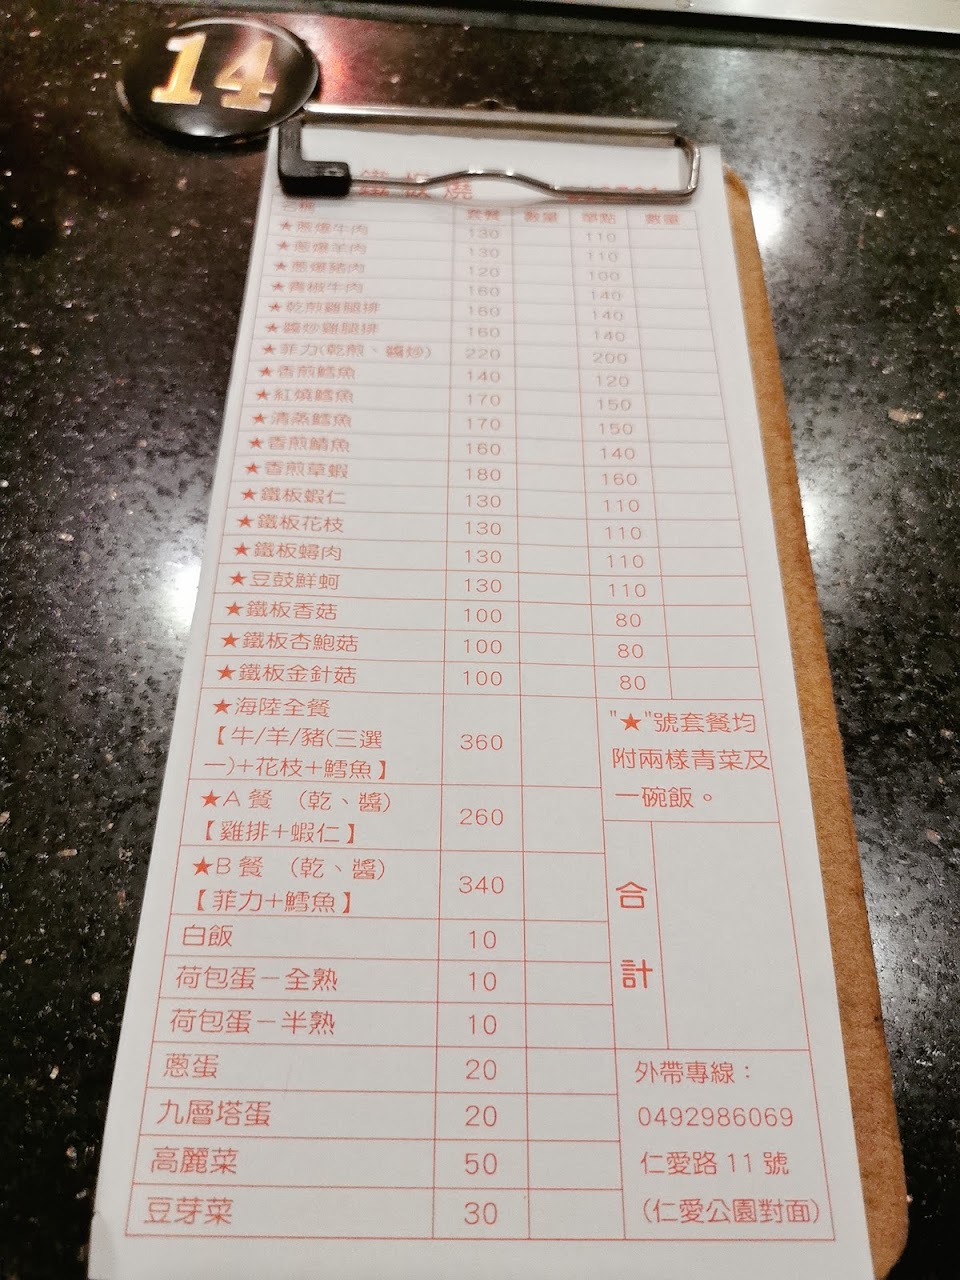 14
鐵板燒
套餐 數量 單點 數量
★蔥爆牛肉 130 110
★蔥爆羊肉 130 110
★蔥爆豬肉 120 100
★青椒牛肉 160 140
★乾煎雞腿排 160 140
★醬炒雞腿排 160 140
★菲力(乾煎、醬炒) 220 200
★香煎鱈魚 140 120
★紅燒鱈魚 170 150
★清蒸鱈魚 170 150
★香煎鯖魚 160 140
★香煎草蝦 180 160
★鐵板蝦仁 130 110
★鐵板花枝 130 110
★鐵板蟳肉 130 110
★豆鼓鮮蚵 130 110
★鐵板香菇 100 80
★鐵板杏鮑菇 100 80
★鐵板金針菇 100 80
★海陸全餐
【牛/羊/豬(三選
一)+花枝+鱈魚】
360
★A 餐 （乾、醬）
【雞排+蝦仁】
260
★B 餐 （乾、醬）
【菲力+鱈魚】
340
白飯 10
荷包蛋－全熟 10
荷包蛋－半熟 10
蔥蛋 20
九層塔蛋 20
高麗菜 50
豆芽菜 30
"★"號套餐均
附兩樣青菜及
一碗飯。
合
計
外帶專線：
0492986069
仁愛路 11 號
(仁愛公園對面)